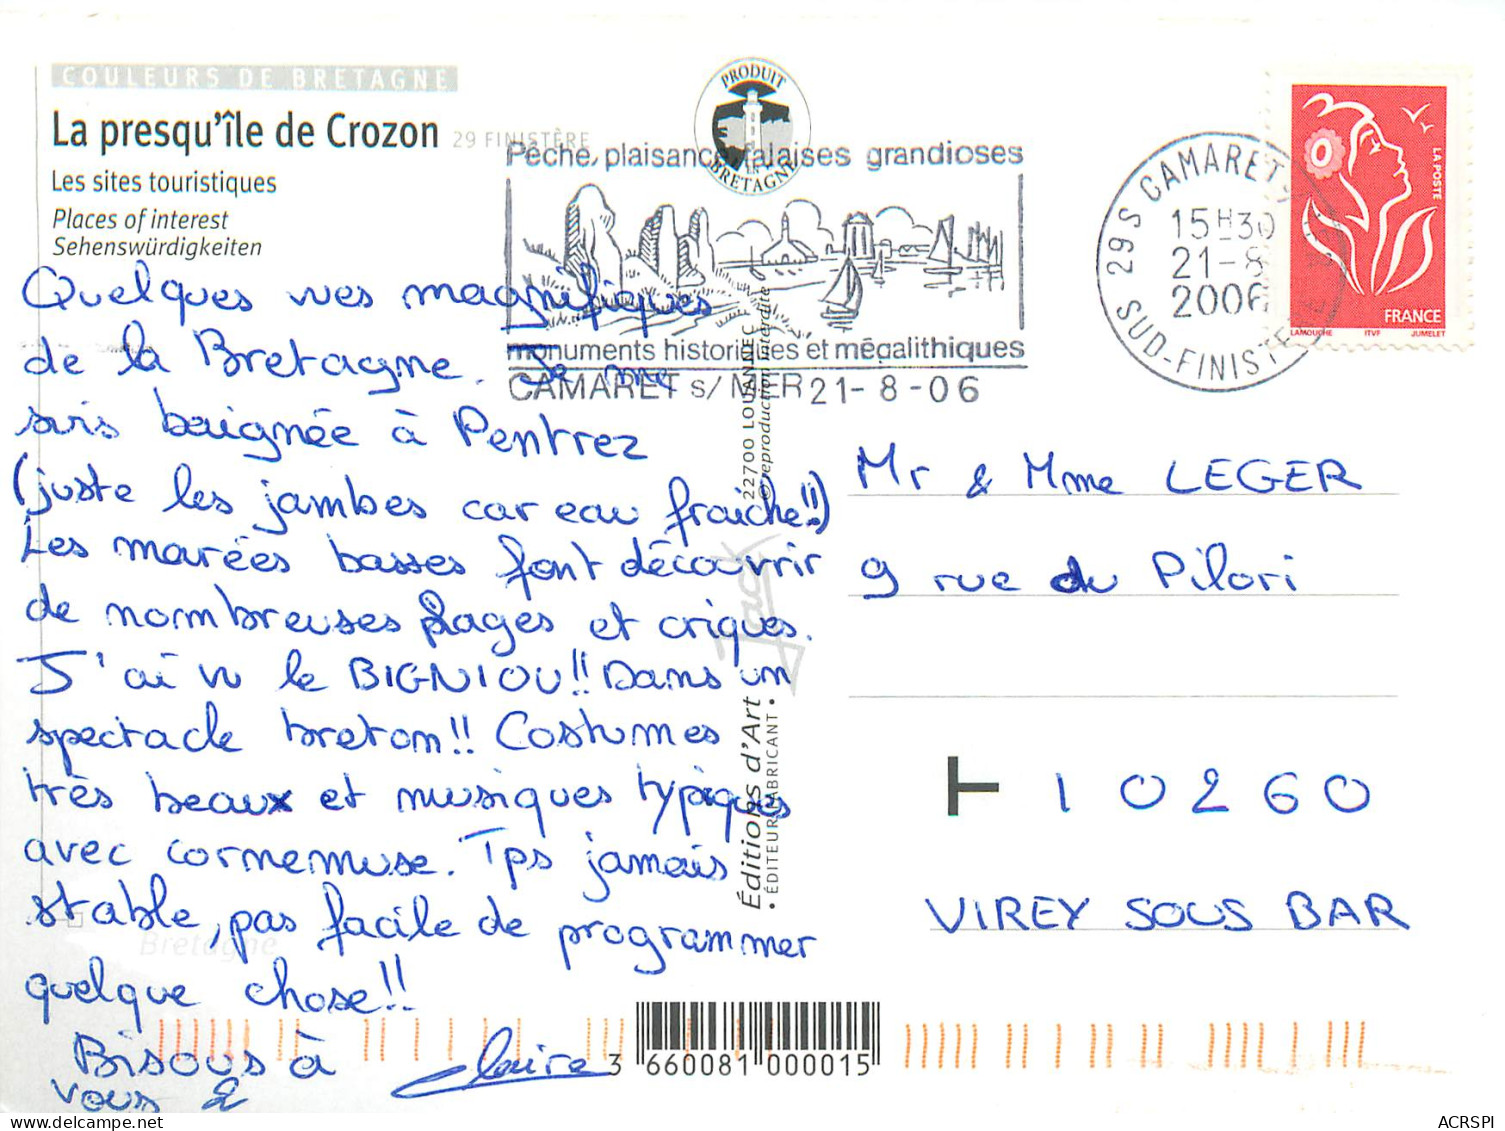 COULEURS DE BRETAGNE
La presqu'île de Crozon 29 FINISTÈRE
Les sites touristiques
Places of interest
Sehenswürdigkeiten
PRODUIT EN BRETAGNE
Pêche, plaisance, falaises grandioses
monuments historiques et mégalithiques
CAMARET s/ MER 21-8-06
29S CAMARET-S
15H30
21-8
2006
SUD-FINISTE
LA POSTE
FRANCE
LAMOUCHE ITVF JUMELET
Quelques vues magnifiques
de la Bretagne. Je me
suis baignée à Pentrez
(juste les jambes car eau fraiche!!)
Les marées basses font découvrir
de nombreuses plages et criques.
J'ai vu le BIGNIOU!! Dans un
spectacle breton!! Costumes
très beaux et musiques typiques
avec cornemuse. Tps jamais
stable, pas facile de programmer
quelque chose!!
Bisous à
vous 2
Claire
22700 LOUANNEC
© reproduction interdite
Jack
Éditions d'Art
• ÉDITEUR FABRICANT •
Bretagne
Mr & Mme LEGER
9 rue du Pilori
10260
VIREY SOUS BAR
3 660081 000015
ACRSPI